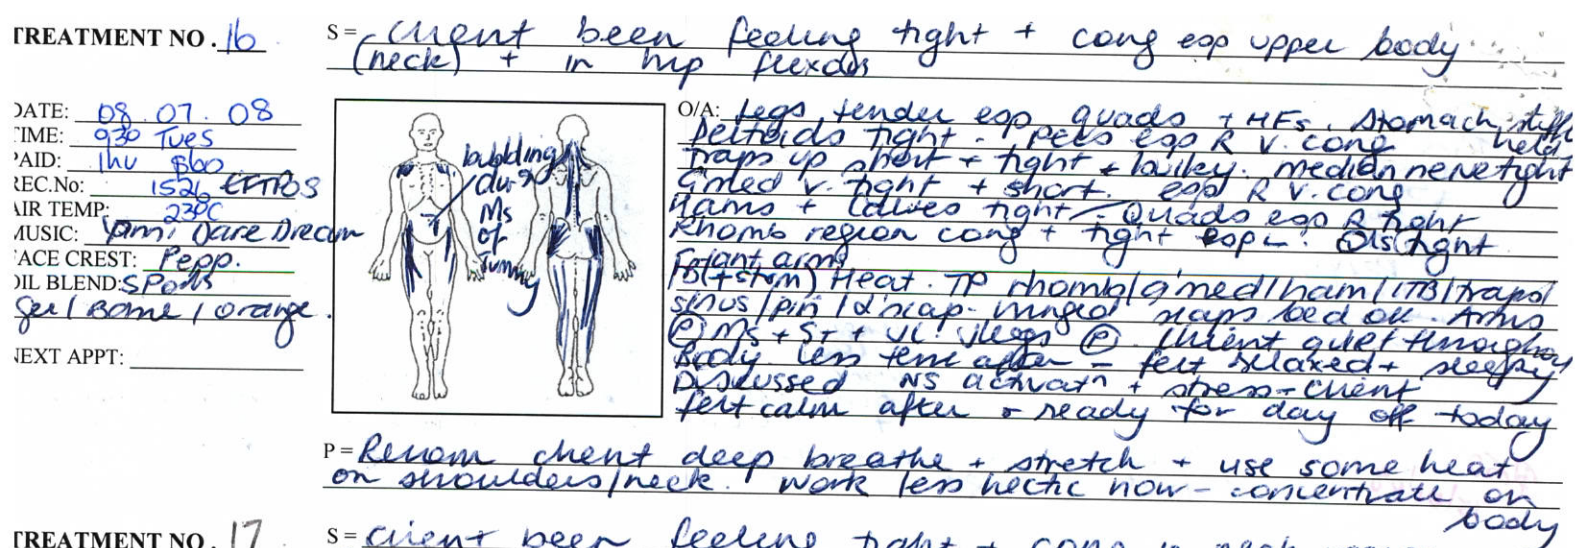 TREATMENT NO. 16
S = client been feeling tight + cong esp upper body
(neck) + in hip flexors
DATE: 08.07.08
TIME: 930 Tues
PAID: 1hr $60
REC.No: 1526 EFTPOS
AIR TEMP: 23°C
MUSIC: Dare Dream
FACE CREST: Pepp.
OIL BLEND: Spots
Ger / Bome / orange.
NEXT APPT:
bubbling
during
Ms
of
Tummy
O/A: Legs tender esp quads + HFs. Stomach stiff
Deltoids tight - pecs esp R v. cong held
Traps up short + tight + bulky. median nerve tight
Gmed v. tight + short. esp R v. cong
Hams + Calves tight - Quads esp R tight
Rhomb region cong + tight esp L. tight
arms
(+ stom) Heat. TP rhomb/gmed/ham/ITB/traps/
sinus / scaps bed off. Arms
(P) Ms + ST + legs (P). Client quiet throughout
Body less tense after - felt relaxed + sleepy
Discussed NS activatn + stress - client
felt calm after + ready for day off today
P = Recom client deep breathe + stretch + use some heat
on shoulders/neck. work less hectic now - concentrate on
body
TREATMENT NO. 17
S = client been feeling tight + cong in neck